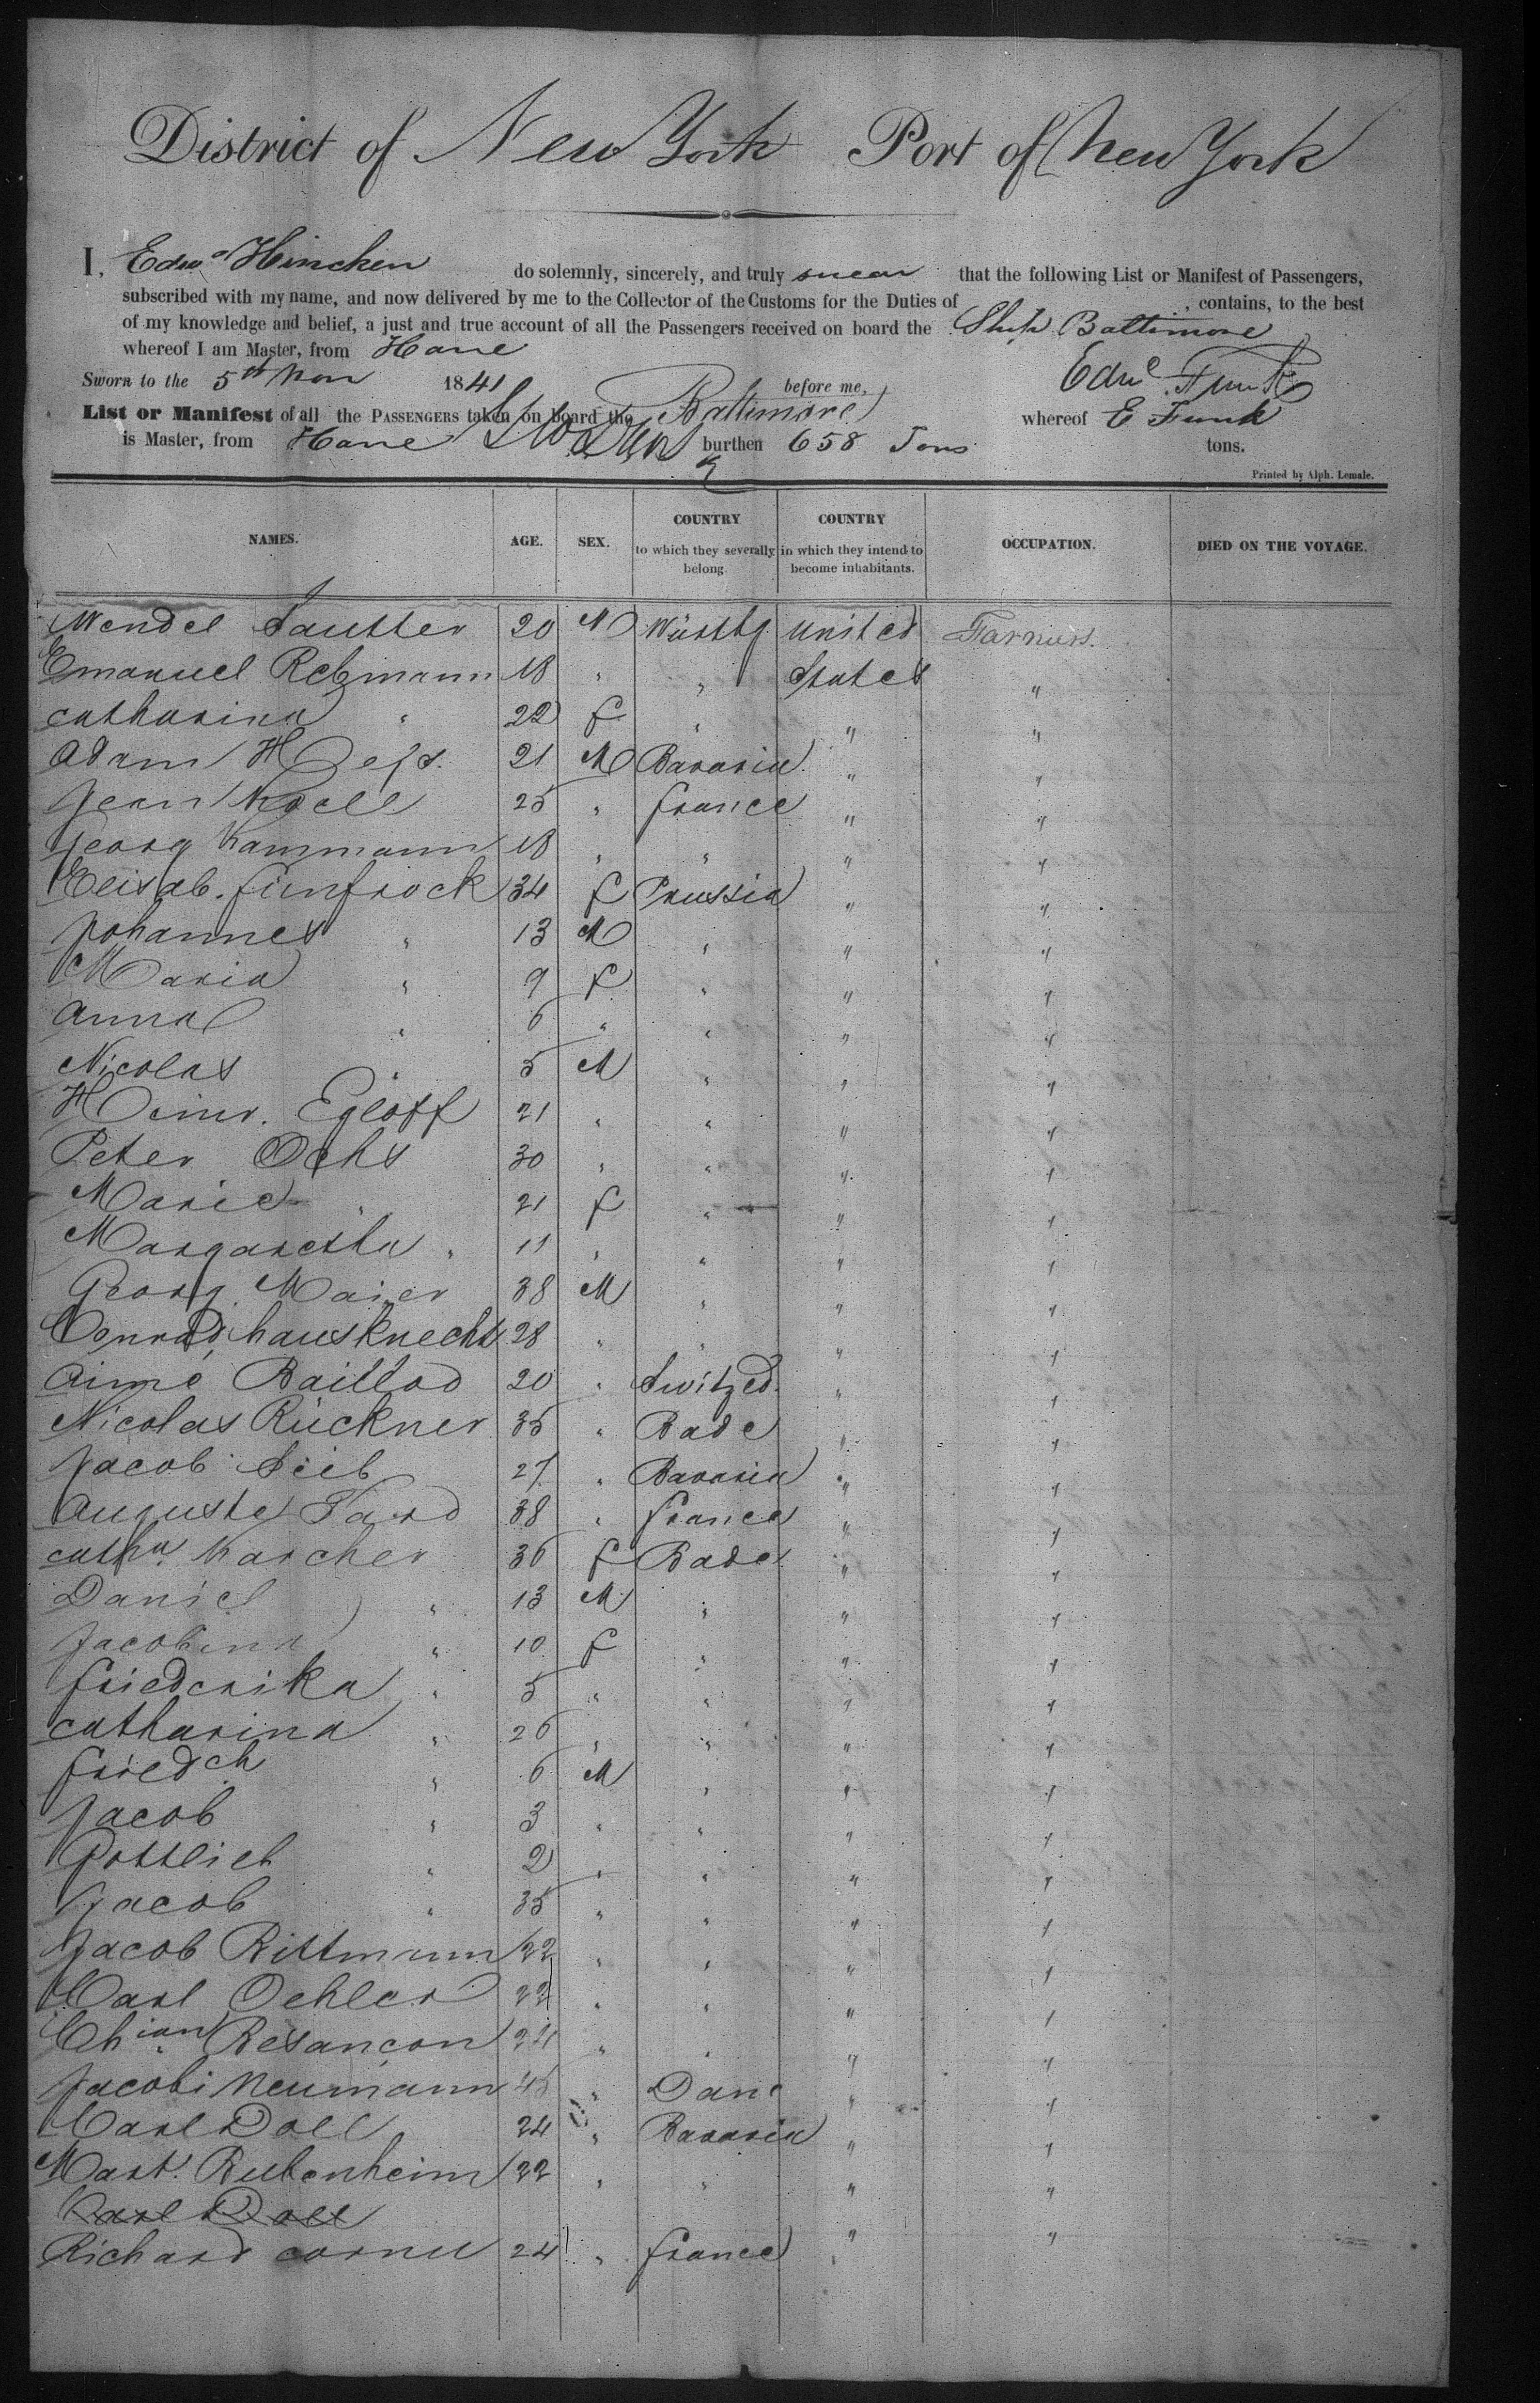 District of New York Port of New York
I, Edwd Hincken do solemnly, sincerely, and truly swear that the following List or Manifest of Passengers,
subscribed with my name, and now delivered by me to the Collector of the Customs for the Duties of , contains, to the best
of my knowledge and belief, a just and true account of all the Passengers received on board the Ship Baltimore
whereof I am Master, from Havre
Sworn to the 5th Nov 1841 before me, Edwd Funk
List or Manifest of all the PASSENGERS taken on board the Baltimore whereof E Funk
is Master, from Havre burthen 658 Tons tons.
Printed by Alph. Lemale.
NAMES. AGE. SEX. COUNTRY to which they severally belong COUNTRY in which they intend to become inhabitants. OCCUPATION. DIED ON THE VOYAGE.
Wendel Sautter 20 M Württbg United Farmers.
Emanuel Rebmann 18 " " States "
Catharina " 22 f " " "
Adam Hess. 21 M Bavaria " "
Jean Noell 25 " france " "
Georg Kammann 18 " " " "
Elisab. fünfrock 34 f Prussia " "
Johannes " 13 M " " "
Maria " 9 f " " "
Anna " 6 " " " "
Nicolas " 5 M " " "
Heinr. Egloff 21 " " " "
Peter Ochs 30 " " " "
Marie " 21 f " " "
Margaretha " 11 " " " "
Georg Maier 38 M " " "
Conrad hausknecht 28 " " " "
Aimé Baillod 20 " Switzed. " "
Nicolas Rückner 35 " Bade " "
Jacob Seib 27 " Bavaria " "
Auguste Tard 38 " france " "
Catha. Karcher 36 f Bade " "
Daniel " 13 M " " "
Jacobina " 10 f " " "
friederika " 5 " " " "
Catharina " 26 " " " "
friedch " 6 M " " "
Jacob " 3 " " " "
Gottlieb " 2 " " " "
Jacob " 35 " " " "
Jacob Rittmann 22 " " " "
Carl Oehler 22 " " " "
Chian Besançon 24 " " " "
Jacobi Neumann 45 " Dane " "
Carl Doll 24 " Bavaria " "
Mart. Rubenheim 22 " " " "
Carl Doll " "
Richard Cornu 24 " france "